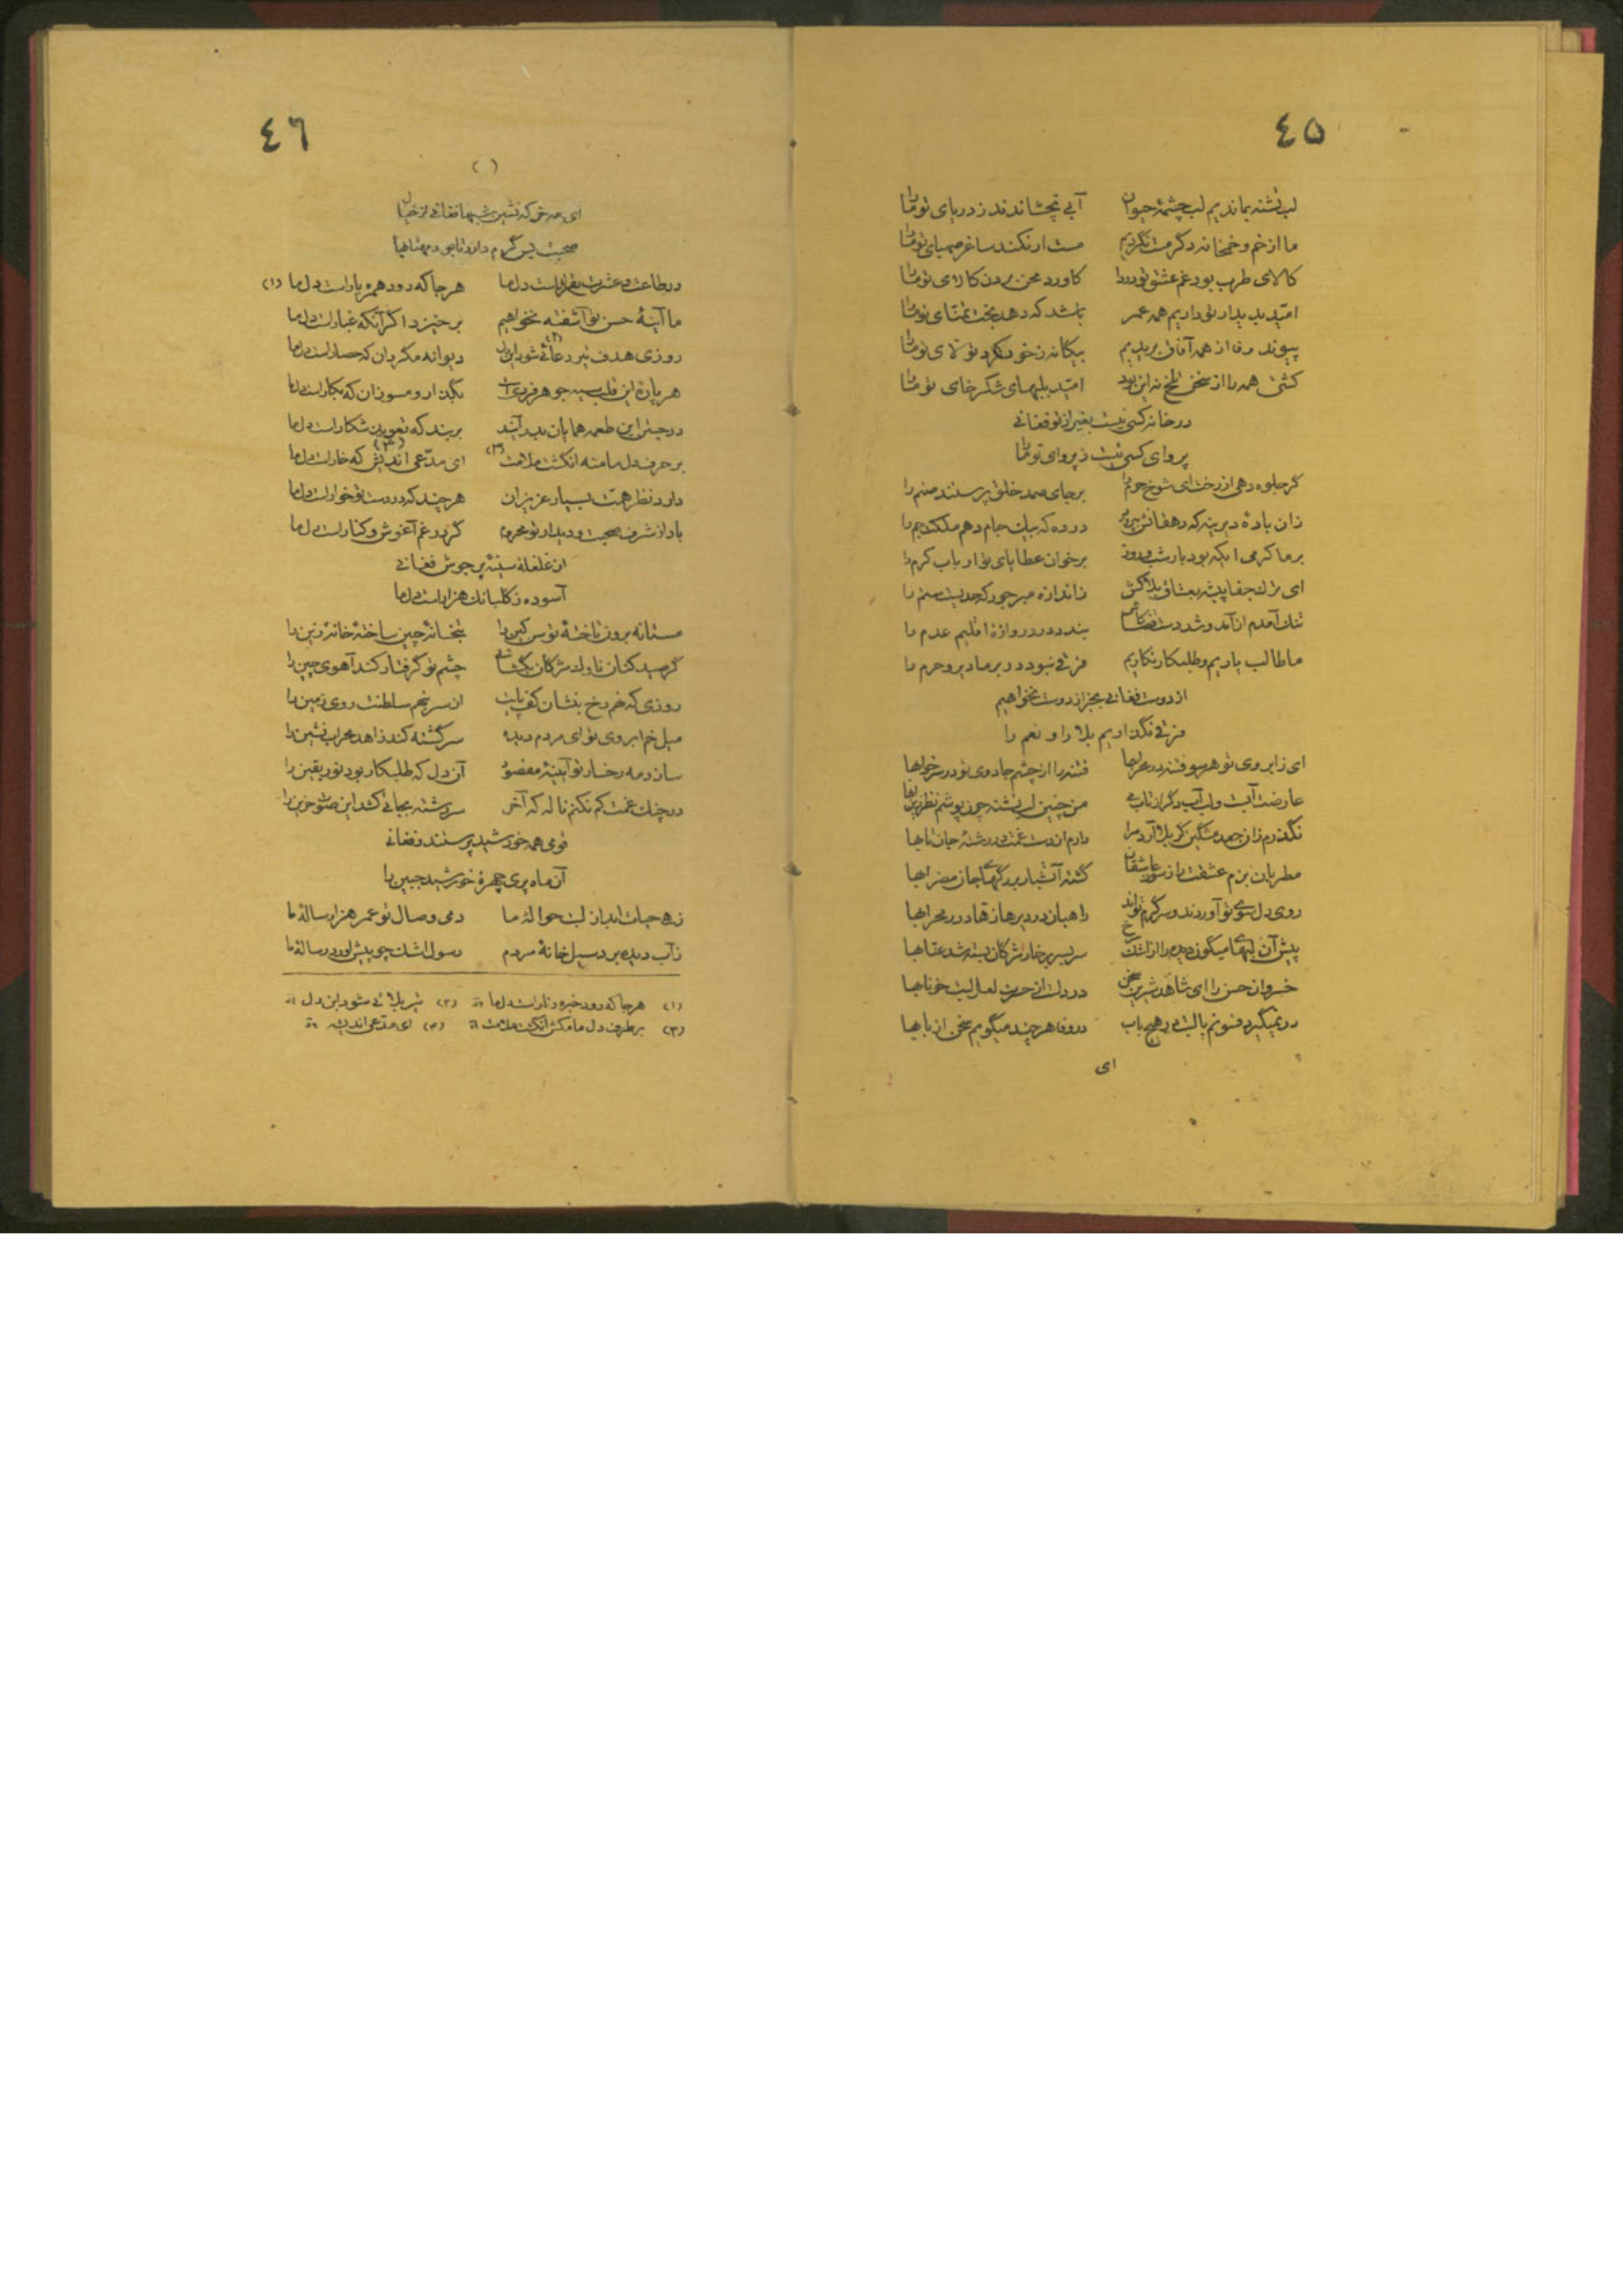 ٤٥
لب تشنه بماندیم لب چشمهٔ حیوان آبی نچشاندند ز دریای تو ما را
ما از خم و خمخانه دگر مست نگردیم مست ار نکند ساغر صهبای تو ما را
کالای طرب بود غم عشق تو
امید بدیدار تو داریم همه عمر باشد که دهد بخت تمنای تو ما را
پیوند وفا از همه آفاق بریدیم بیگانه ز خود کرد تولای تو ما را
کشتی همه را از سخن تلخ امید بلبهای شکرخای تو ما را
در خانه کسی نیست بغیر از تو فغانی
پروای کسی نیست ز پروای تو ما را
گر جلوه دهی از رخت ای شوخ برجای صمد خلق پرستند صنم را
زان بادهٔ دیرینه که دهقانش در ده که بیک جام دهم ملکت جم را
برما کرمی بود یا رب برخوان عطایای تو ارباب کرم را
ای ترک جفا پیشه ز اندازه مبر جور که حدیست ستم را
تنگ آمدم از آمد و شد بندد در دروازهٔ اقلیم عدم را
ما طالب یاریم و طلبکار نگاریم فرقی نبود در بر ما دیر و حرم را
از دوست فغانی بجز از دوست نخواهیم
فرقی نگذاریم بلا را و نعم را
ای ز ابروی تو هر سو فتنه در محرابها فتنه را از چشم جادوی تو در سر خوابها
عارضت آبست و لب آب دگر از تاب می من چنین لب تشنه چون پوشم نظر زین آبها
نگذرم زان جعد مشگین گر بلا آرد مرا دارم از دست غمت در رشتهٔ جان تابها
مطربان بزم عشقت را ز سوز عاشقان گشته آتشبار بر رگهای جان مضرابها
روی دل سوی تو آوردند و سرگرم تواند راهبان در دیرها زهاد در محرابها
پیش آن لبهای میگون دیده را از اشک سر بسر بر خار مژگان بسته شد عنابها
خسروان حسن را ای شاهد شیرین سخن در دلست از حسرت لعل لبت خونابها
در نمیگیرد فسونم با لبت در هیچ باب در وفا هر چند میگویم سخن از بابها
ای
٤٦
( )
ای مه خرگه نشین شبها فغانی از خیال
صحبتی بس گرم دارد تا بود مهتابها
در طاعت و عشرت بقرارست دل ما هر جا که رود همره یارست دل ما (۱)
ما آینهٔ حسن تو آشفته نخواهیم برخیزد اگر آنکه غبارست دل ما
روزی هدف تیر دعائی شود این دل (۲) دیوانه مگردان که حصارست دل ما
هر پارهٔ این قلب سیه جوهر فردیست بگذار و مسوزان که بکارست دل ما
در جستن این طعمه همایان بدر آیند بربند که تعویذ شکارست دل ما
بر حرف دل ما منه انگشت ملامت (۳) ای مدعی اندیش (۴) که خارست دل ما
دارد نظر همت بسیار عزیزان هر چند که در دست تو خوارست دل ما
باد از شرف صحبت و دیدار تو محروم گر در غم آغوش و کنارست دل ما
از غلغلهٔ سینهٔ پر جوش فغانی
آسوده ز گلبانگ هزارست دل ما
مستانه برون تاختهٔ توسن کین را بتخانهٔ چین ساختهٔ خانهٔ زین را
گر صید کنان ناوک مژگان بگشائی چشم تو گرفتار کند آهوی چین را
روزی که نهم رخ بنشان کف پایت از سر بنهم سلطنت روی زمین را
میل خم ابروی تو ای مردم دیده سرگشته کند زاهد محراب نشین را
سازد مه رخسار تو آیینهٔ مقصود آن دل که طلبکار بود نور یقین را
در چنگ غمت کم نکنم ناله که آخر سر رشته بجائی کشد این صوت حزین را
قومی همه خورشید پرستند و فغانی
آن ماه پری چهرهٔ خورشید جبین را
زهی حیات ابد از لبت حوالهٔ ما دمی وصال تو عمر هزار سالهٔ ما
ز آب دیده برد سیل خانهٔ مردم رسول اشک چو پیش آورد رسالهٔ ما
(۱) هر جا که رود دل ما (۲) تیر بلائی شود این دل
(۳) بر طرف دل ما مکش انگشت ملامت (۴) ای مدعی اندیشه